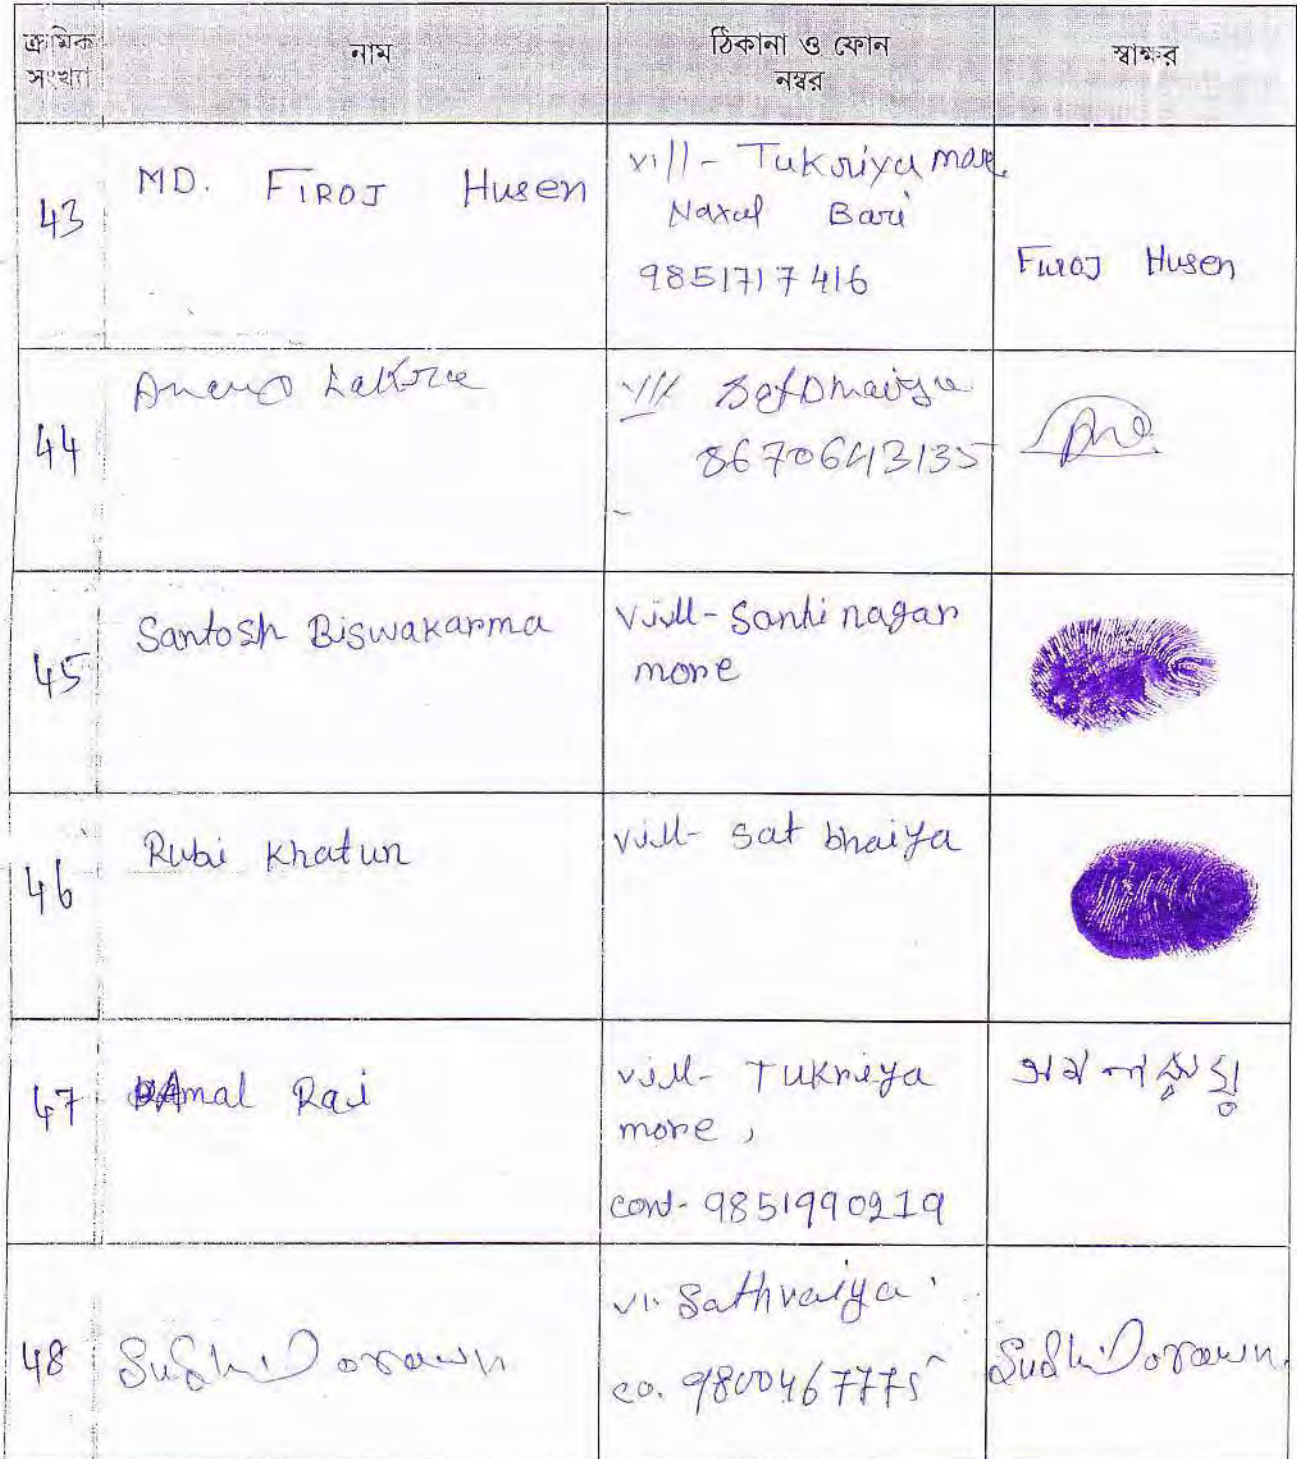 ক্রমিক সংখ্যা নাম ঠিকানা ও ফোন নম্বর স্বাক্ষর
43 MD. FIROJ Husen
vill- Tukriya more
Naxal Bari
9851717416
Firoj Husen
44 Lakra
vill
8670643135
45 Santosh Biswakarma
vill- Santi nagar
more
46 Rubi Khatun
vill- Sat bhaiya
47 Amal Rai
vill- Tukriya
more,
cont- 9851990219
48 Sushil orawn
vi. Sathvaiya
co. 9800467775
Sushil orawn.